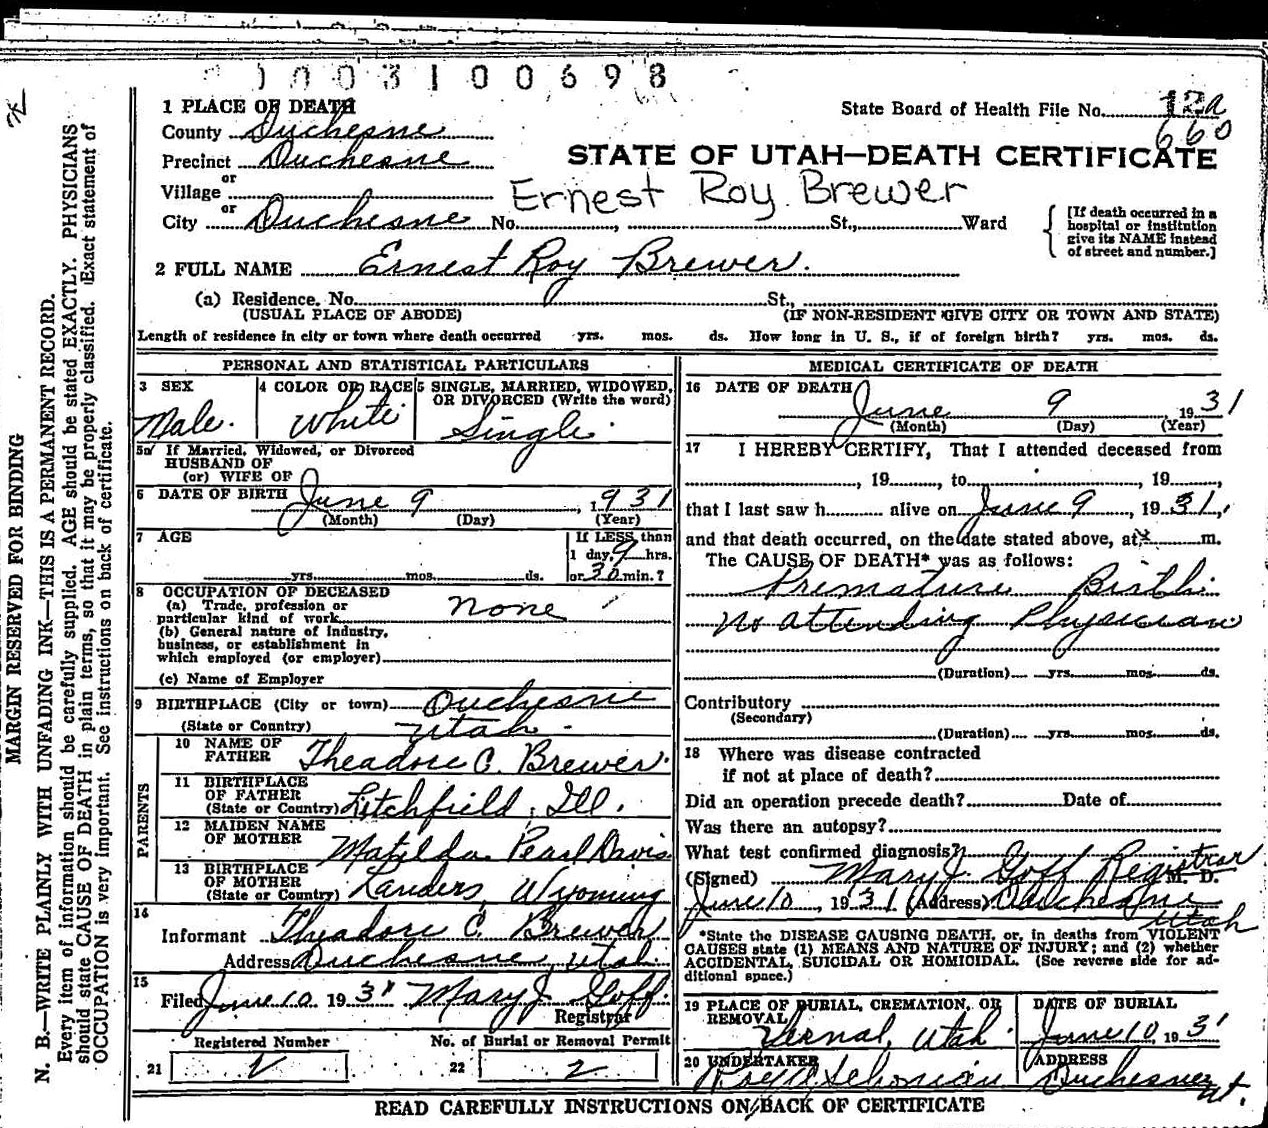 1003100698
1 PLACE OF DEATH
State Board of Health File No. 12a
660
County Duchesne
Precinct Duchesne
STATE OF UTAH—DEATH CERTIFICATE
or
Village
Ernest Roy Brewer
or
City Duchesne No. , St., Ward
[If death occurred in a
hospital or institution
give its NAME instead
of street and number.]
2 FULL NAME Ernest Roy Brewer.
(a) Residence, No. St.,
(USUAL PLACE OF ABODE) (IF NON-RESIDENT GIVE CITY OR TOWN AND STATE)
Length of residence in city or town where death occurred yrs. mos. ds. How long in U. S., if of foreign birth? yrs. mos. ds.
PERSONAL AND STATISTICAL PARTICULARS
3 SEX 4 COLOR OR RACE 5 SINGLE, MARRIED, WIDOWED,
OR DIVORCED (Write the word)
Male. White Single.
5a If Married, Widowed, or Divorced
HUSBAND OF
(or) WIFE OF
6 DATE OF BIRTH June 9 , 1931
(Month) (Day) (Year)
7 AGE If LESS than
1 day, 9 hrs.
yrs. mos. ds. or 30 min.?
8 OCCUPATION OF DECEASED
(a) Trade, profession or
particular kind of work none
(b) General nature of industry,
business, or establishment in
which employed (or employer)
(c) Name of Employer
9 BIRTHPLACE (City or town) Duchesne
(State or Country) Utah.
PARENTS
10 NAME OF
FATHER Theadore C. Brewer.
11 BIRTHPLACE
OF FATHER
(State or Country) Litchfield, Ill.
12 MAIDEN NAME
OF MOTHER Matilda Pearl Davis
13 BIRTHPLACE
OF MOTHER
(State or Country) Landers, Wyoming
14
Informant Theadore C. Brewer
Address Duchesne, Utah
15
Filed June 10 1931 Mary J. Goff
Registrar
Registered Number No. of Burial or Removal Permit
21 22 2
MEDICAL CERTIFICATE OF DEATH
16 DATE OF DEATH
June 9 , 1931
(Month) (Day) (Year)
17 I HEREBY CERTIFY, That I attended deceased from
, 19 , to , 19 ,
that I last saw h alive on June 9 , 1931,
and that death occurred, on the date stated above, at m.
The CAUSE OF DEATH* was as follows:
Premature Birth.
No attending Physician
(Duration) yrs. mos. ds.
Contributory
(Secondary)
(Duration) yrs. mos. ds.
18 Where was disease contracted
if not at place of death?
Did an operation precede death? Date of
Was there an autopsy?
What test confirmed diagnosis?
(Signed) Mary J. Goff Registrar M. D.
June 10 , 1931 (Address) Duchesne
Utah
*State the DISEASE CAUSING DEATH, or, in deaths from VIOLENT
CAUSES state (1) MEANS AND NATURE OF INJURY; and (2) whether
ACCIDENTAL, SUICIDAL OR HOMICIDAL. (See reverse side for ad-
ditional space.)
19 PLACE OF BURIAL, CREMATION, OR
REMOVAL
Vernal, Utah.
DATE OF BURIAL
June 10, 1931
20 UNDERTAKER
ADDRESS
Duchesne
Ut.
READ CAREFULLY INSTRUCTIONS ON BACK OF CERTIFICATE
MARGIN RESERVED FOR BINDING
N. B.—WRITE PLAINLY WITH UNFADING INK—THIS IS A PERMANENT RECORD.
Every item of information should be carefully supplied. AGE should be stated EXACTLY. PHYSICIANS
should state CAUSE OF DEATH in plain terms, so that it may be properly classified. Exact statement of
OCCUPATION is very important. See instructions on back of certificate.